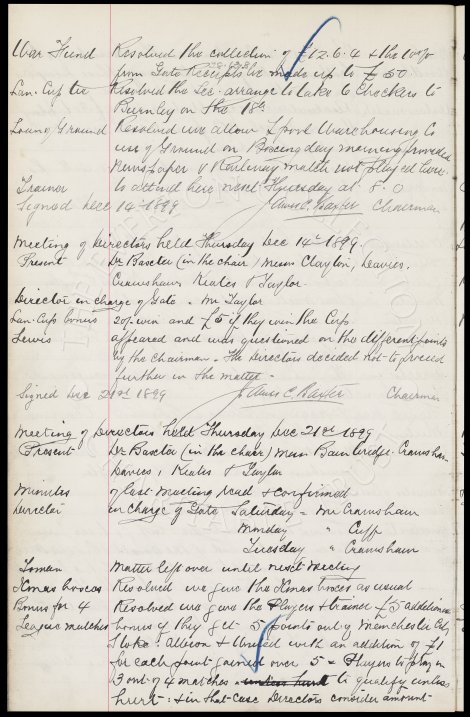 War Fund Resolved the collection of £12.6.4 & the 10%
from Gate Receipts be made up to £50.
Lan. Cup tie Resolved the Sec. arrange to take 6 checkers to
Burnley on the 18th
Loan of Ground Resolved we allow L'pool Warehousing Co
use of Ground on Boxing day morning provided
Newspaper v Railway match not played here
Trainer to attend here next Thursday at 8.0
Signed Dec 14th 1899 James C. Baxter Chairman
Meeting of Directors held Thursday Dec 14th 1899.
Present Dr Baxter (in the chair) Messrs Clayton, Davies,
Cranshaw, Keates & Taylor.
Director in charge of Gate - Mr Taylor
Lan. Cup bonus 20/- win and £5 if they win the Cup.
Lewis appeared and was questioned on the different points
by the Chairman. The Directors decided not to proceed
further in the matter.
Signed Dec 21st 1899 James C. Baxter Chairman
Meeting of Directors held Thursday Dec 21st 1899
Present Dr Baxter (in the chair) Messrs Bainbridge, Cranshaw
Davies, Keates & Taylor
Minutes of last meeting read & confirmed
Director in charge of Gate Saturday = Mr Cranshaw
Monday " Cuff
Tuesday " Cranshaw
Matter left over until next meeting
Xmas boxes Resolved we give the Xmas boxes as usual
Bonus for 4 Resolved we give the Players & trainer £5 additional
League matches bonus if they get 5 points out of Manchester City
Stoke: Albion & United with an addition of £1
for each point gained over 5 = Players to play in
3 out of 4 matches to qualify unless
hurt: & in that case Directors consider amount